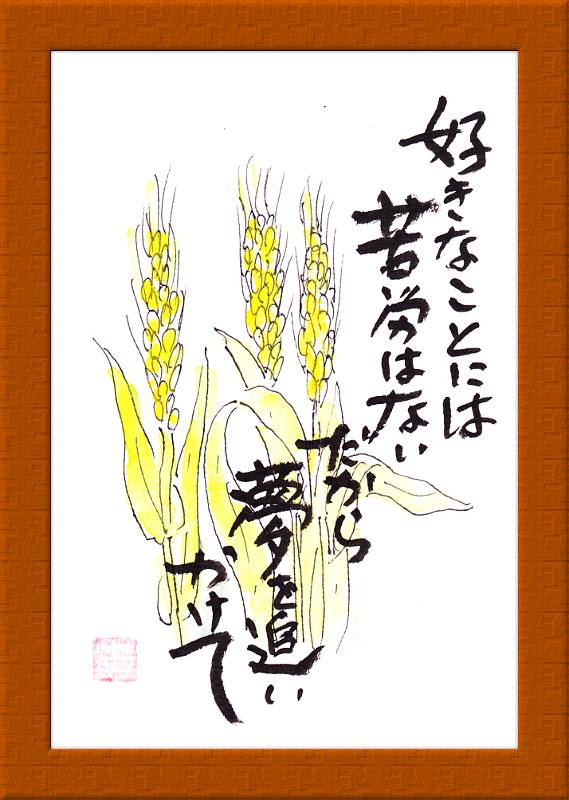 好きなことには
苦労はない
だから
夢を追い
かけて